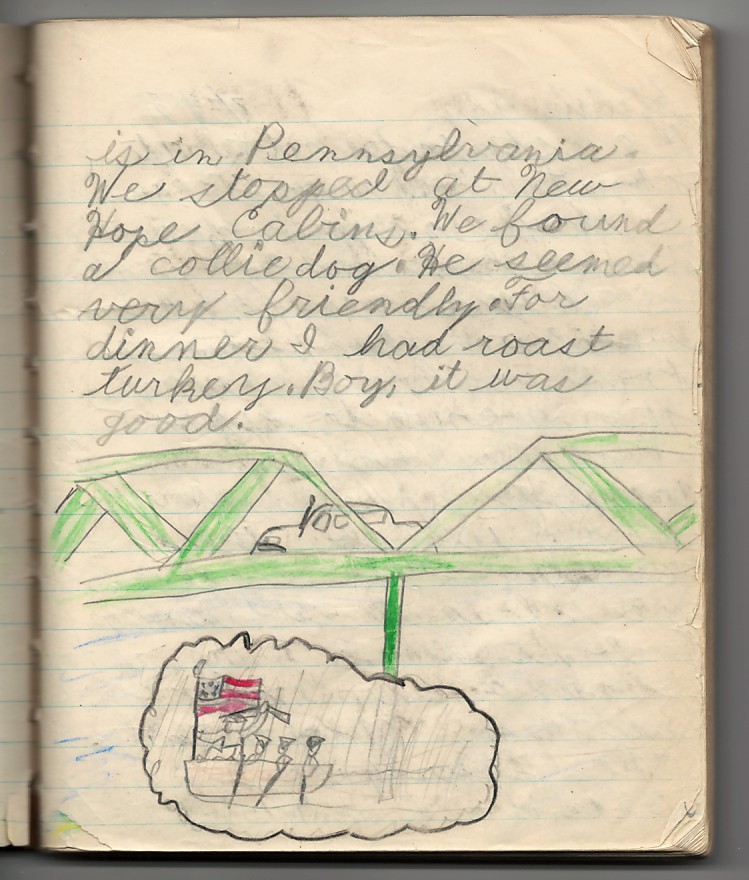 is in Pennsylvania.
We stopped at New
Hope Cabins. We found
a collie dog. He seemed
very friendly. For
dinner I had roast
turkey. Boy, it was
good.